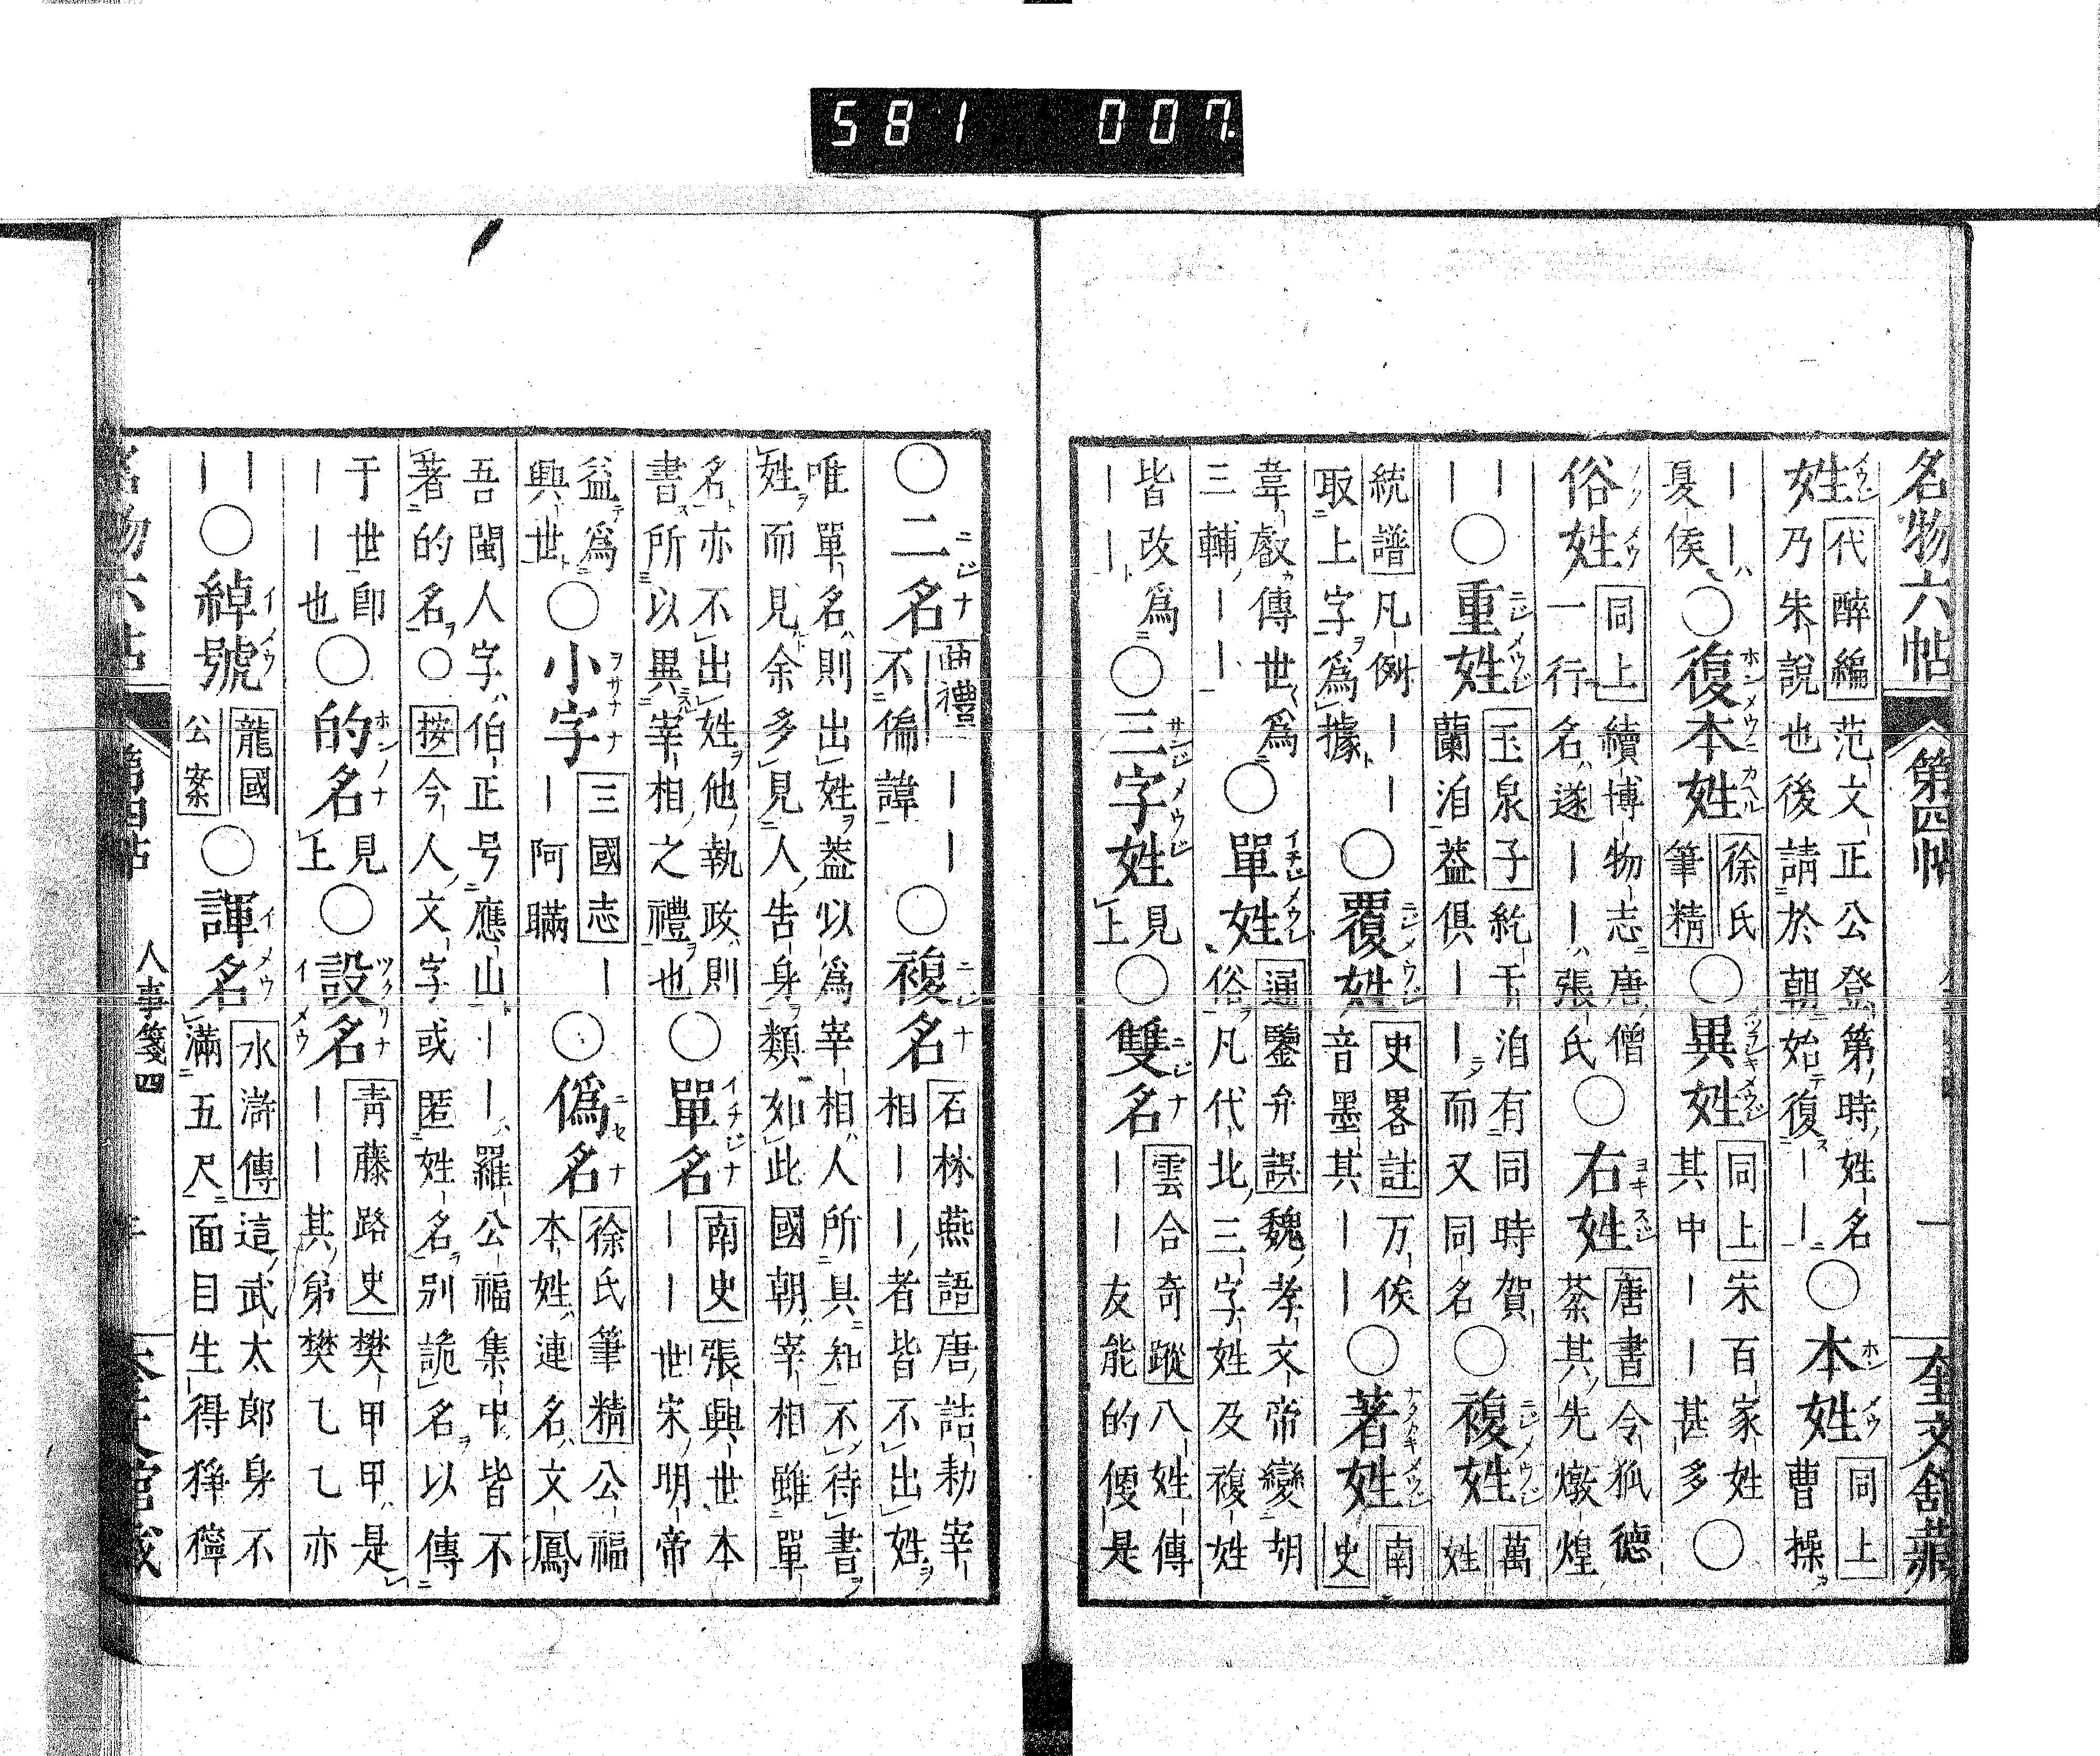 581 007.
名物六帖 第四帖 一 奎文舘蔵
姓 代醉編 范文正公登第時姓名乃朱說也後請於朝始復｜｜ 〇本姓 同上 曹操
｜｜夏侯 〇復本姓 徐氏筆精 〇異姓 同上 宋百家姓其中｜｜甚多 〇
俗姓 同上 續博物志唐僧一行名遂｜｜張氏 〇右姓 唐書 令狐德棻其先燉煌
｜｜ 〇重姓 玉泉子 紇干洎有同時賀蘭洎蓋俱｜｜而又同名 〇複姓 萬姓
統譜 凡例｜｜取上字爲據 〇覆姓 史畧註 万俟音墨其｜｜ 〇著姓 南史
韋叡傳世爲三輔｜｜ 〇單姓 通鑒弁誤 魏孝文帝變胡俗凡代北三字姓及複姓
皆改爲｜｜ 〇三字姓 見上 〇雙名 雲合奇蹤 八姓傳｜｜友能的便是
〇二名 曲禮 ｜｜不偏諱 〇複名 石林燕語 唐誥勅宰相｜｜者皆不出姓
唯單名則出姓蓋以爲宰相人所具知不待書姓而見余多見人告身類如此國朝宰相雖單
名亦不出姓他執政則書所以異宰相之禮也 〇單名 南史 張興世本｜｜世宋明帝
益爲興世 〇小字 三國志 ｜｜阿瞞 〇僞名 徐氏筆精 公福本姓連名文鳳
吾閩人字伯正号應山｜｜羅公福集中皆不著的名〇按今人文字或匿姓名别詭名以傳
于世卽｜｜也 〇的名 見上 〇設名 青藤路史 樊甲甲是｜｜其弟樊乙乙亦
｜｜ 〇綽號 龍國公案 〇諢名 水滸傳 這武太郎身不滿五尺面目生得猙獰
人事箋四